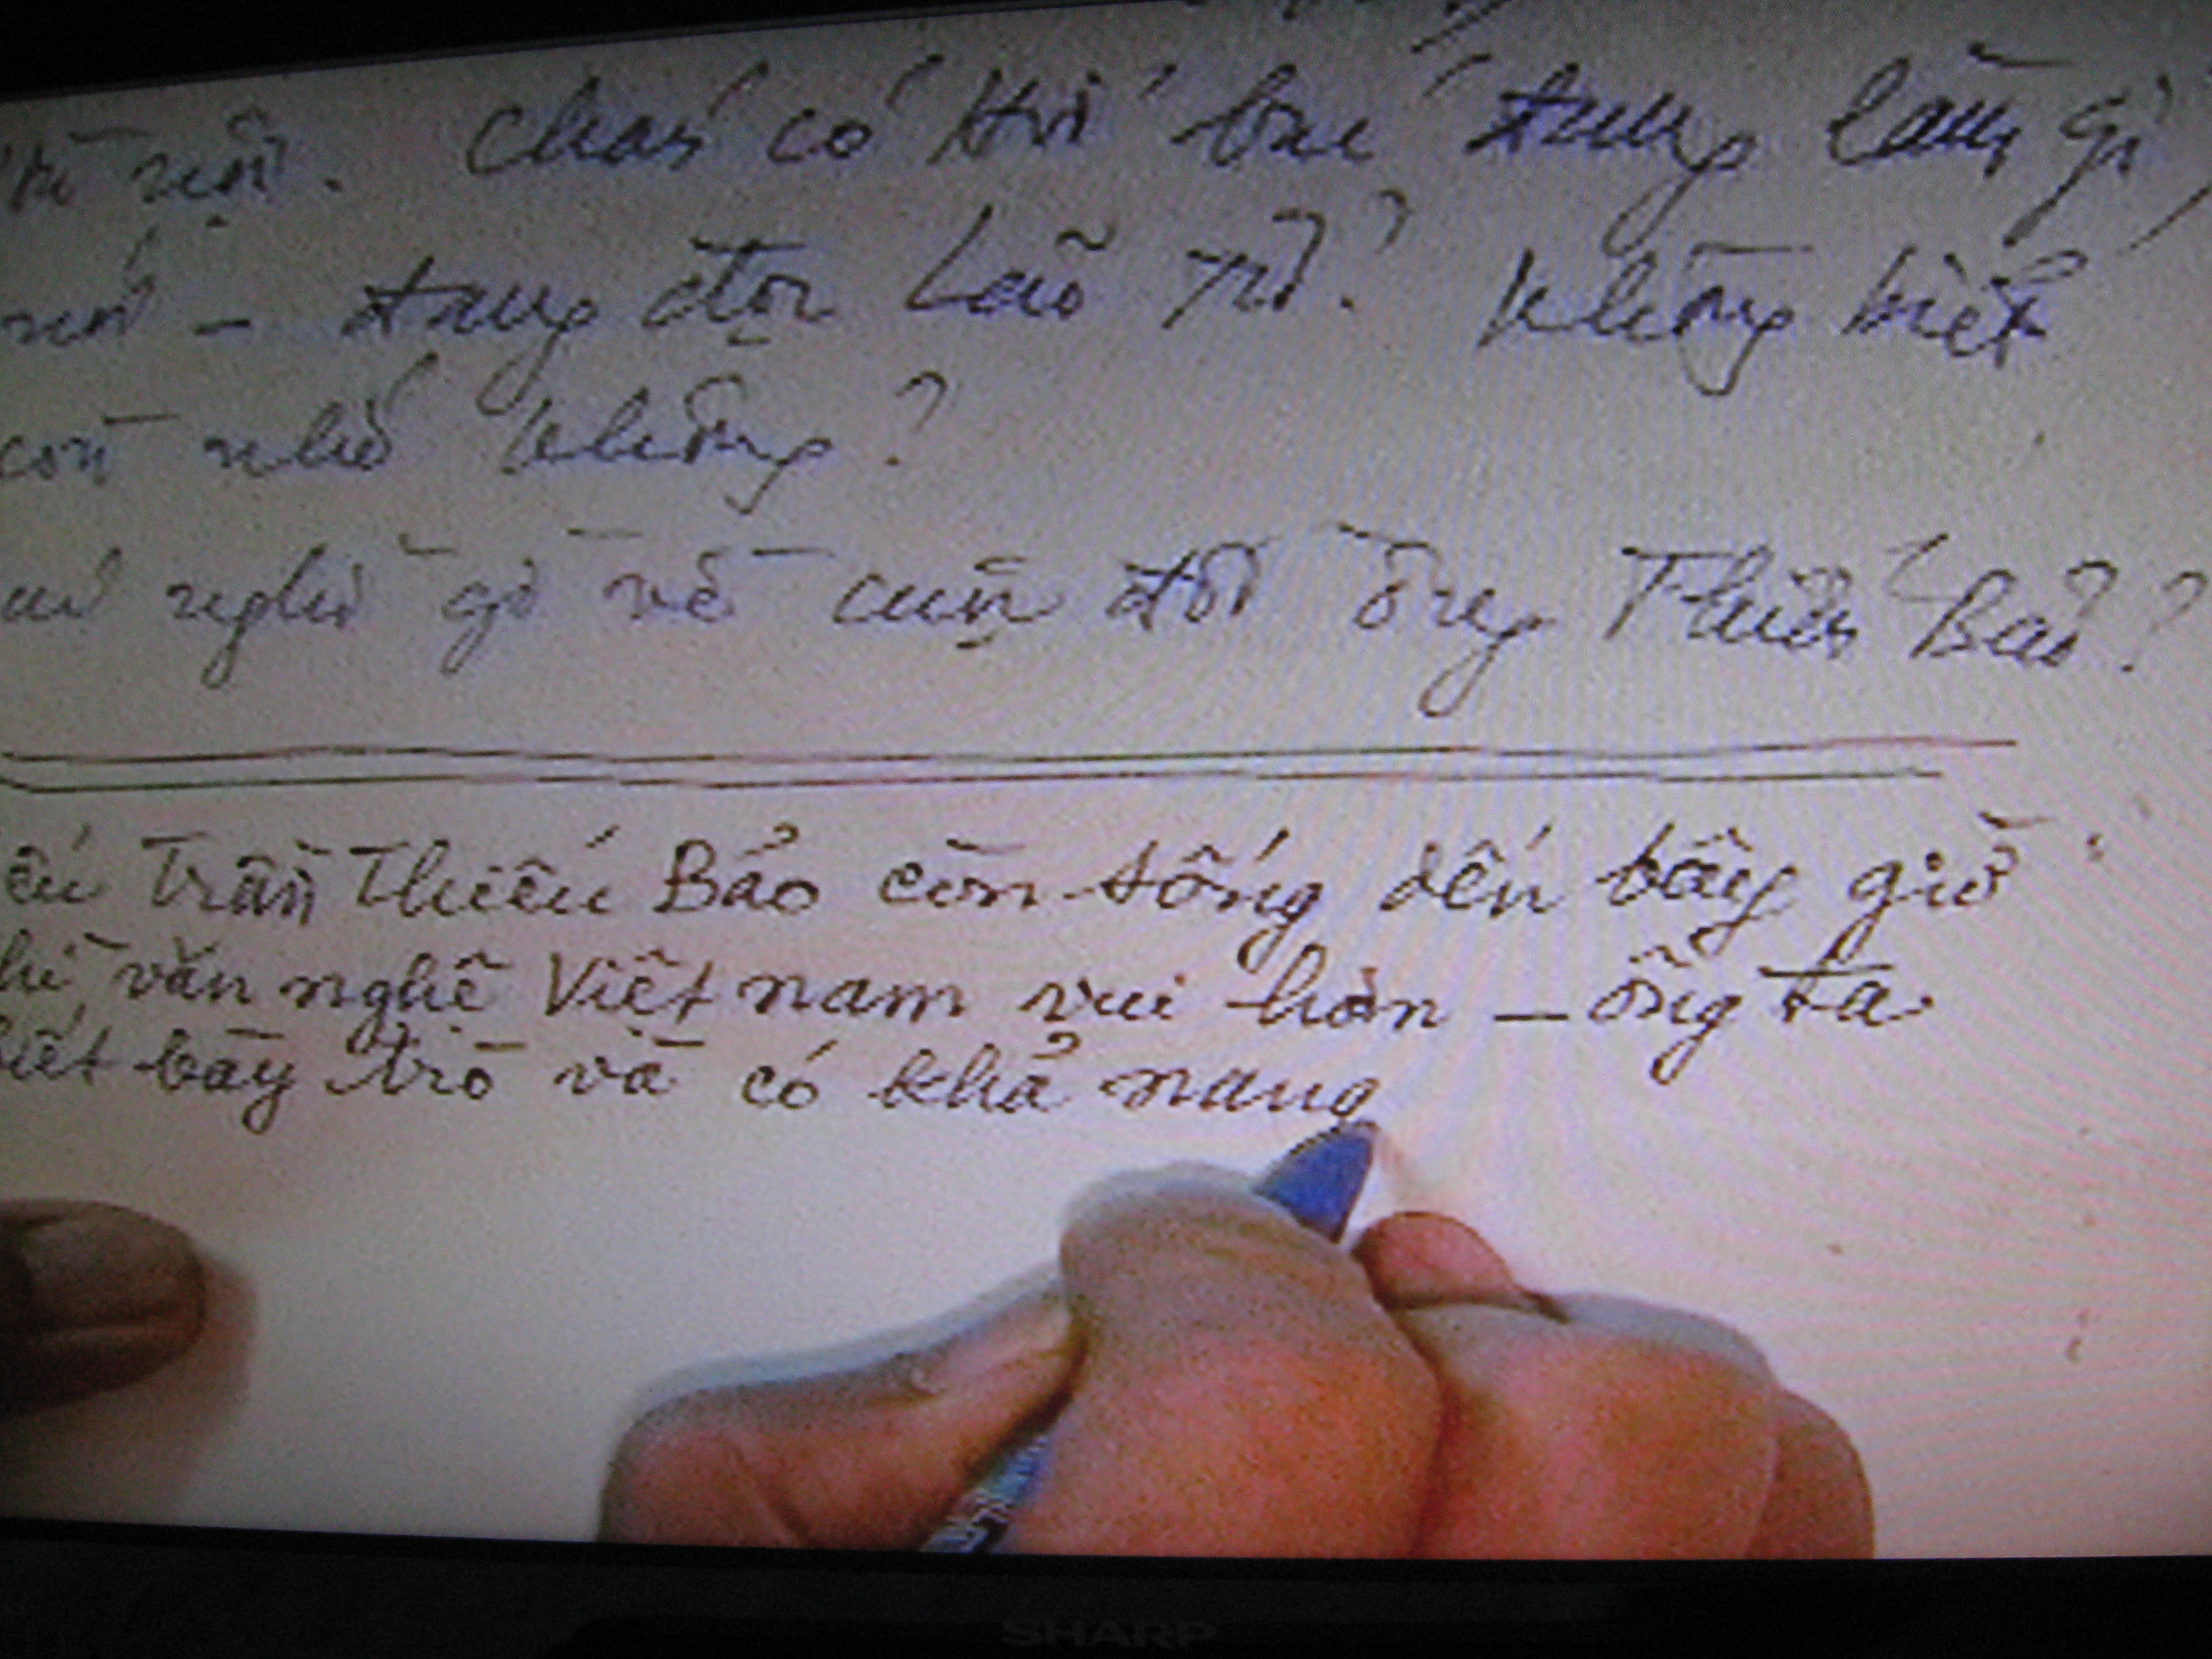 Cháu có thì bác đang làm gì,
nói - đang đọc Lão Tử? Không biết
còn nhớ không?
nghĩ gì về cuộc đời ông Thiếu Bảo?
Trần Thiếu Bảo còn sống đến bây giờ
văn nghệ Việt nam vui hơn - ông ta
biết bày trò và có khả năng
SHARP